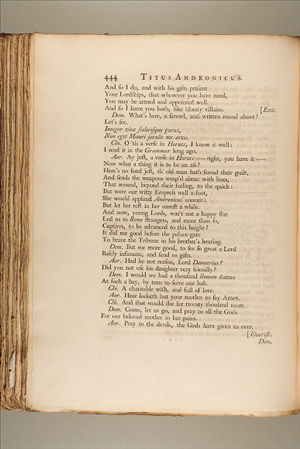 444 TITUS ANDRONICUS.
And so I do, and with his gifts present
Your Lordships, that whenever you have need,
You may be armed and appointed well.
And so I leave you both, like bloody villains. [Exit.
Dem. What's here, a scrowl, and written round about?
Let's see.
Integer vitæ scelerisque purus,
Non eget Mauri jaculis nec arcu.
Chi. O 'tis a verse in Horace, I know it well:
I read it in the Grammar long ago.
Aar. Ay just, a verse in Horace—right, you have it—
Now what a thing it is to be an ass?
Here's no fond jest, th' old man hath found their guilt,
And sends the weapons wrap'd about with lines,
That wound, beyond their feeling, to the quick:
But were our witty Empress well a-foot,
She would applaud Andronicus' conceit:
But let her rest in her unrest a while.
And now, young Lords, was't not a happy star
Led us to Rome strangers, and more than so,
Captives, to be advanced to this height?
It did me good before the palace-gate
To brave the Tribune in his brother's hearing.
Dem. But me more good, to see so great a Lord
Basely insinuate, and send us gifts.
Aar. Had he not reason, Lord Demetrius?
Did you not use his daughter very friendly?
Dem. I would we had a thousand Roman dames
At such a bay, by turn to serve our lust.
Chi. A charitable wish, and full of love.
Aar. Here lacketh but your mother to say Amen.
Chi. And that would she for twenty thousand more.
Dem. Come, let us go, and pray to all the Gods
For our beloved mother in her pains.
Aar. Pray to the devils, the Gods have given us over.
[Flourish.
Dem.